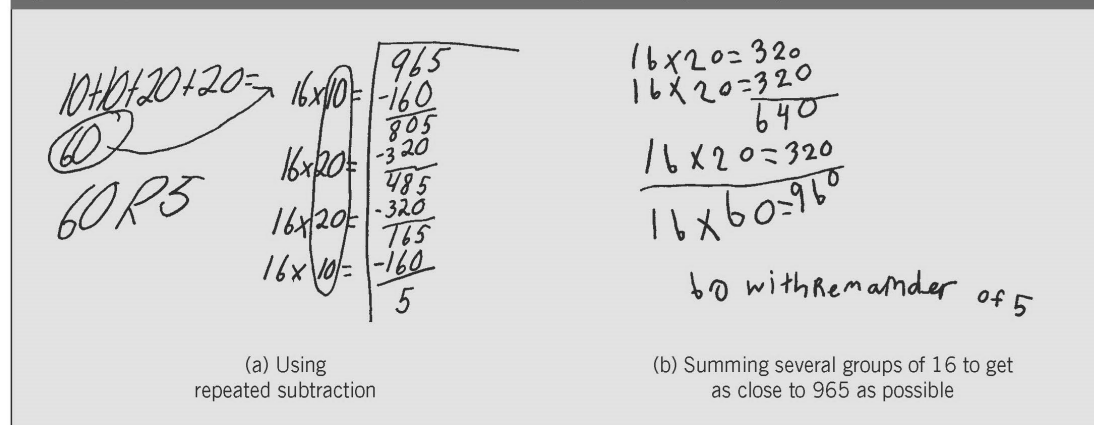 10+10+20+20=
60
60 R5
965
16x10= -160
805
16x20= -320
485
16x20= -320
165
16x10= -160
5
(a) Using
repeated subtraction
16x20=320
16x20=320
640
16x20=320
16x60=960
60 with Remainder of 5
(b) Summing several groups of 16 to get
as close to 965 as possible